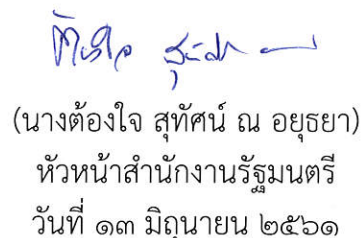 (นางต้องใจ สุทัศน์ ณ อยุธยา)
หัวหน้าสำนักงานรัฐมนตรี
วันที่ ๑๓ มิถุนายน ๒๕๖๑